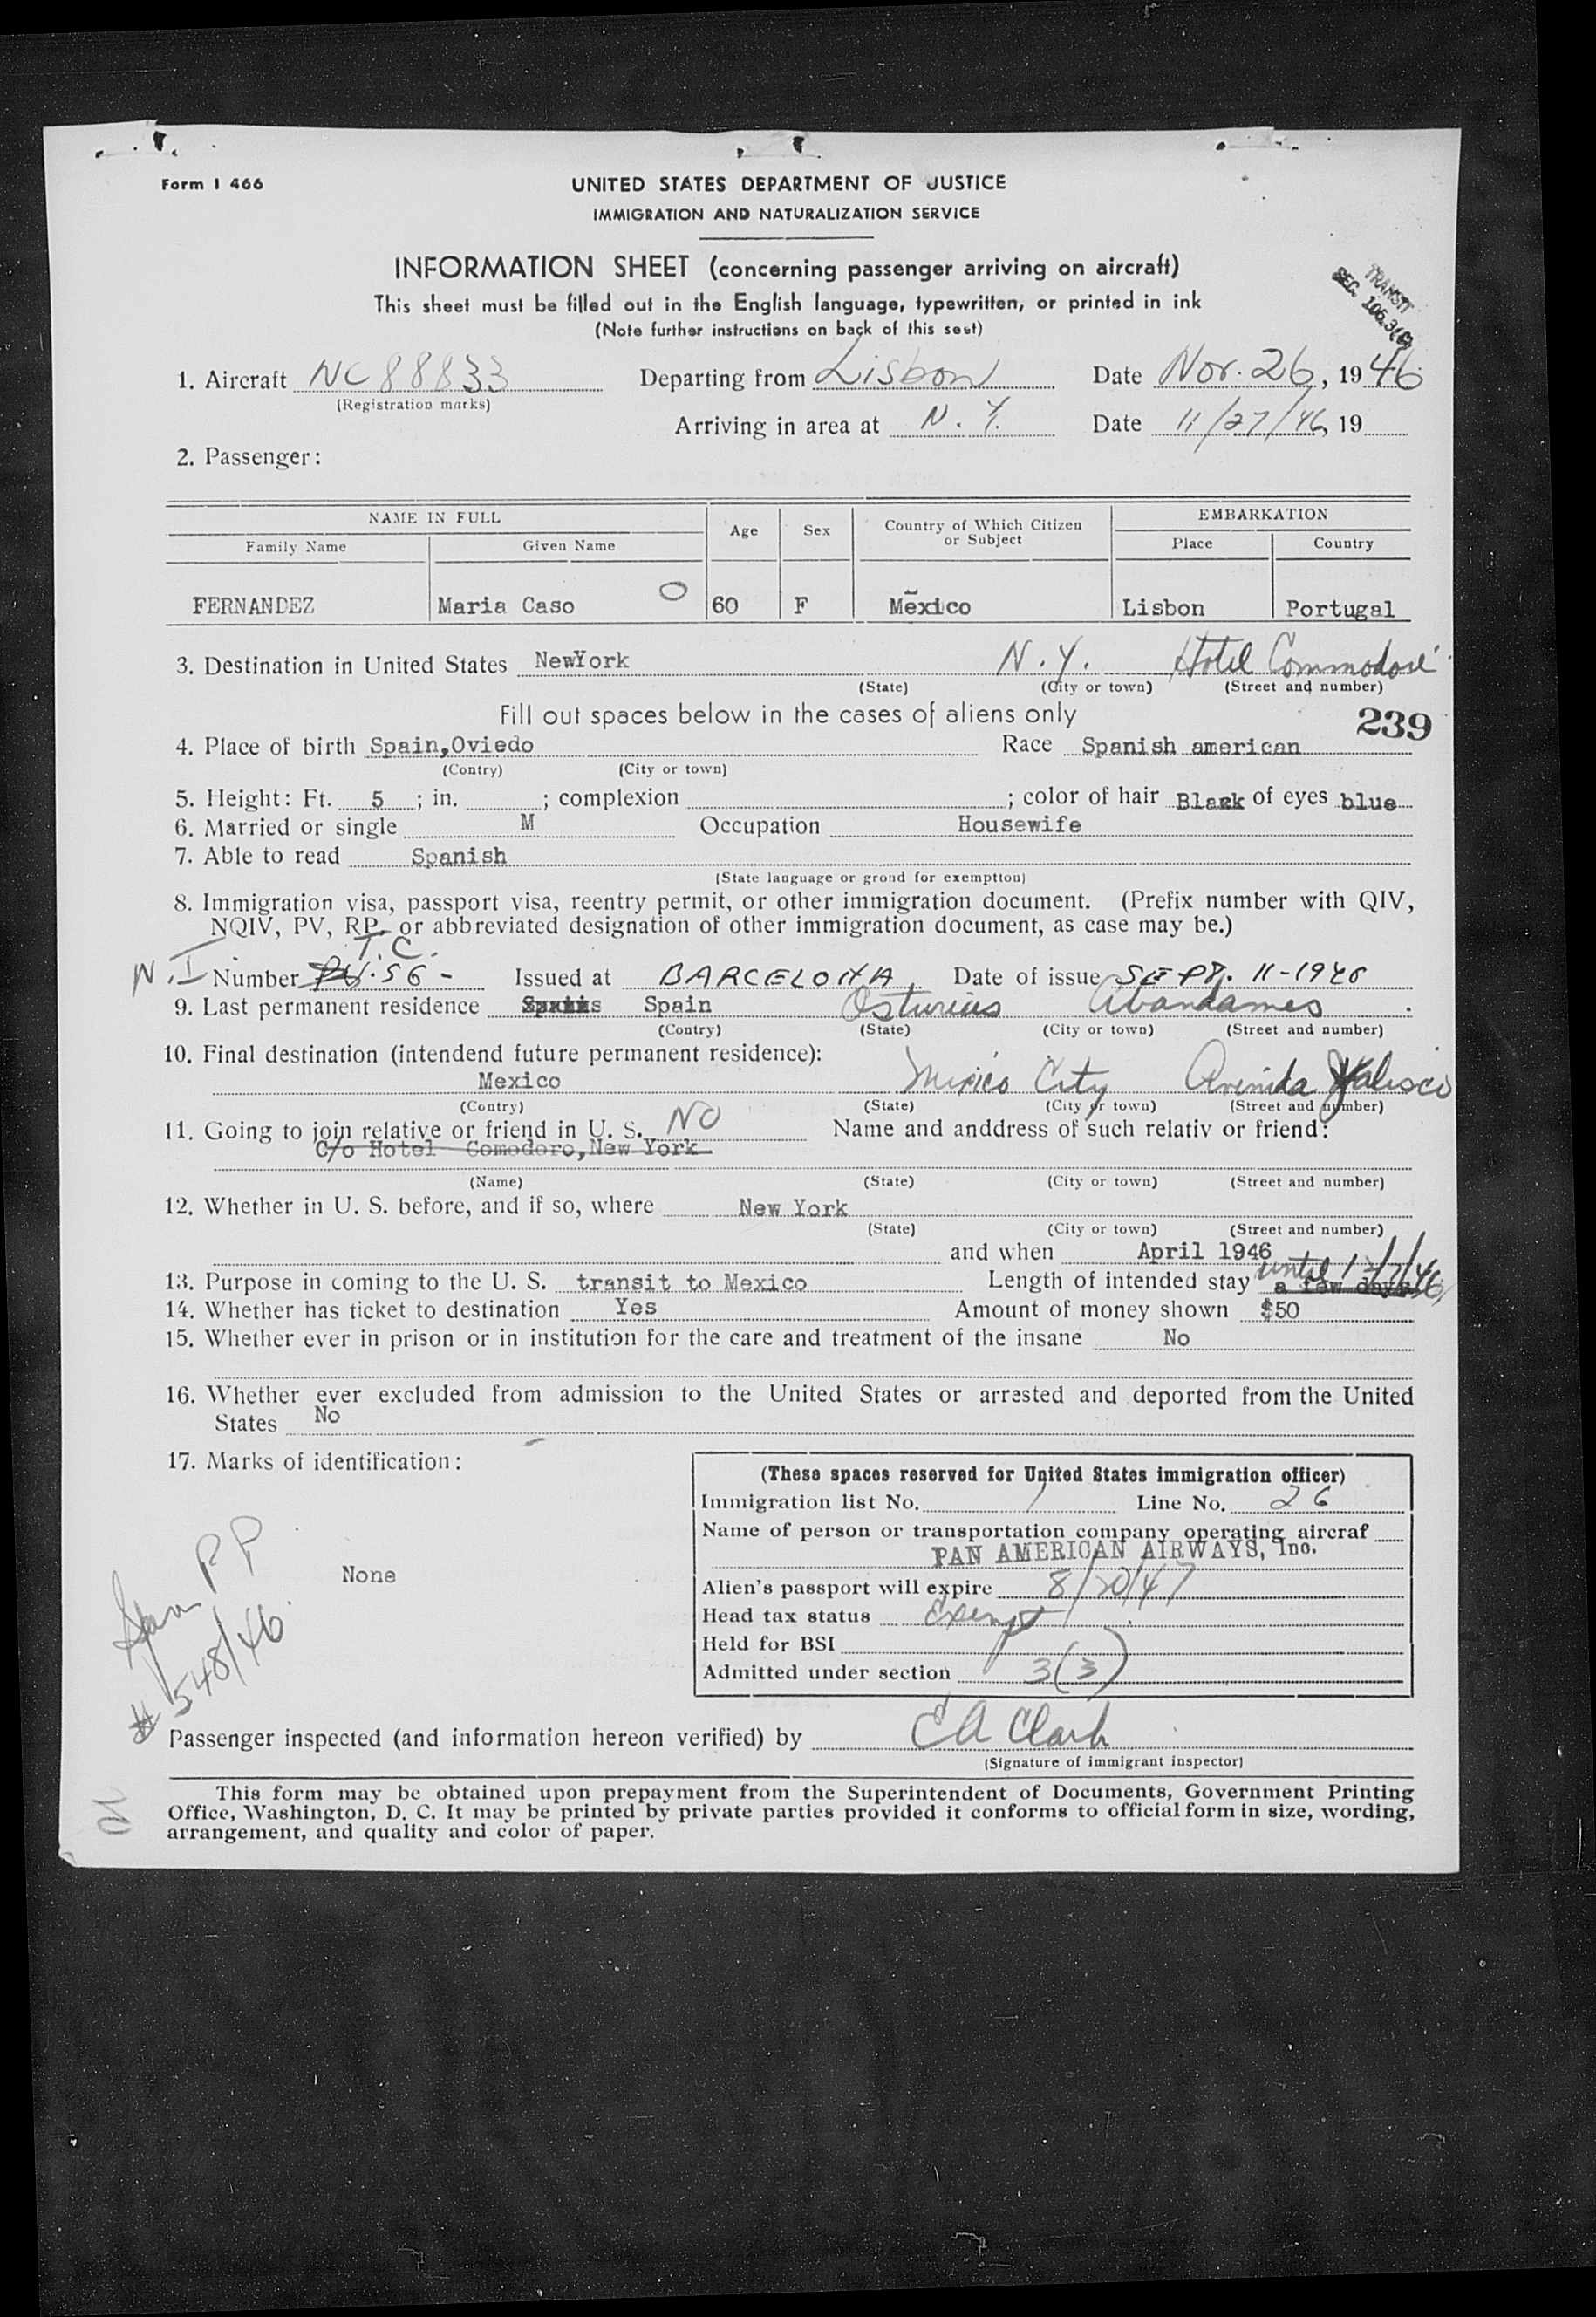 Form I 466
UNITED STATES DEPARTMENT OF JUSTICE
IMMIGRATION AND NATURALIZATION SERVICE
INFORMATION SHEET (concerning passenger arriving on aircraft)
This sheet must be filled out in the English language, typewritten, or printed in ink
(Note further instructions on back of this seet)
TRANSIT
SEC. 106.3(C)
1. Aircraft NC 88833 Departing from Lisbon Date Nov. 26, 1946
(Registration marks)
Arriving in area at N. Y. Date 11/27/46, 19
2. Passenger:
NAME IN FULL Age Sex Country of Which Citizen or Subject EMBARKATION
Family Name Given Name Place Country
FERNANDEZ Maria Caso 60 F Mexico Lisbon Portugal
3. Destination in United States NewYork N. Y. Hotel Commodore
(State) (City or town) (Street and number)
Fill out spaces below in the cases of aliens only
239
4. Place of birth Spain,Oviedo Race Spanish american
(Contry) (City or town)
5. Height: Ft. 5 ; in. ; complexion ; color of hair Black of eyes blue
6. Married or single M Occupation Housewife
7. Able to read Spanish
(State language or grond for exemption)
8. Immigration visa, passport visa, reentry permit, or other immigration document. (Prefix number with QIV,
NQIV, PV, RP. or abbreviated designation of other immigration document, as case may be.)
T.C.
N.I Number 56 - Issued at BARCELONA Date of issue SEPT. 11-1946
9. Last permanent residence Spain Osturias Abandames
(Contry) (State) (City or town) (Street and number)
10. Final destination (intendend future permanent residence):
Mexico Mexico City Avenida Jalisco
(Contry) (State) (City or town) (Street and number)
11. Going to join relative or friend in U. S. NO Name and anddress of such relativ or friend:
C/o Hotel Comodoro,New York
(Name) (State) (City or town) (Street and number)
12. Whether in U. S. before, and if so, where New York
(State) (City or town) (Street and number)
and when April 1946
13. Purpose in coming to the U. S. transit to Mexico Length of intended stay a few days until 12/7/46
14. Whether has ticket to destination Yes Amount of money shown $50
15. Whether ever in prison or in institution for the care and treatment of the insane No
16. Whether ever excluded from admission to the United States or arrested and deported from the United
States No
17. Marks of identification:
None
PP
# 548/46
(These spaces reserved for United States immigration officer)
Immigration list No. 1 Line No. 26
Name of person or transportation company operating aircraf
PAN AMERICAN AIRWAYS, Inc.
Alien's passport will expire 8/20/47
Head tax status Exempt
Held for BSI
Admitted under section 3(3)
Passenger inspected (and information hereon verified) by EA Clark
(Signature of immigrant inspector)
This form may be obtained upon prepayment from the Superintendent of Documents, Government Printing
Office, Washington, D. C. It may be printed by private parties provided it conforms to official form in size, wording,
arrangement, and quality and color of paper.